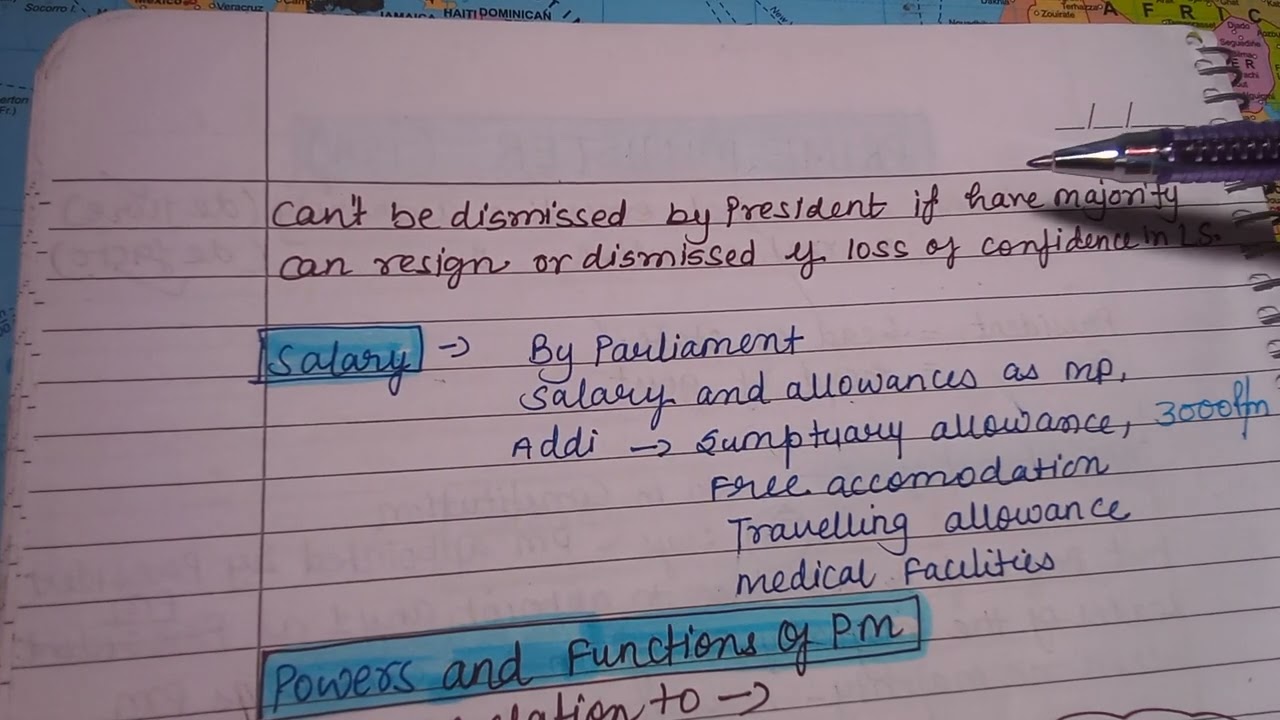 Socorro I.
Veracruz
JAMAICA HAITI DOMINICAN
Zouirate
A F R I C
can't be dismissed by President if have majority
can resign or dismissed if loss of confidence in LS.
Salary → By Parliament
Salary and allowances as mp,
Addi → Sumptuary allowance, 3000/pm
Free accomodation
Travelling allowance
medical facilities
Powers and Functions of PM
lation to →